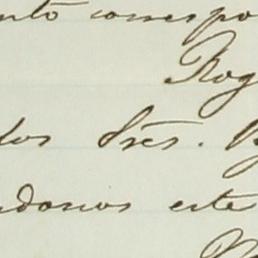 nto correspo
Rog
los Sres. B
ndonos este